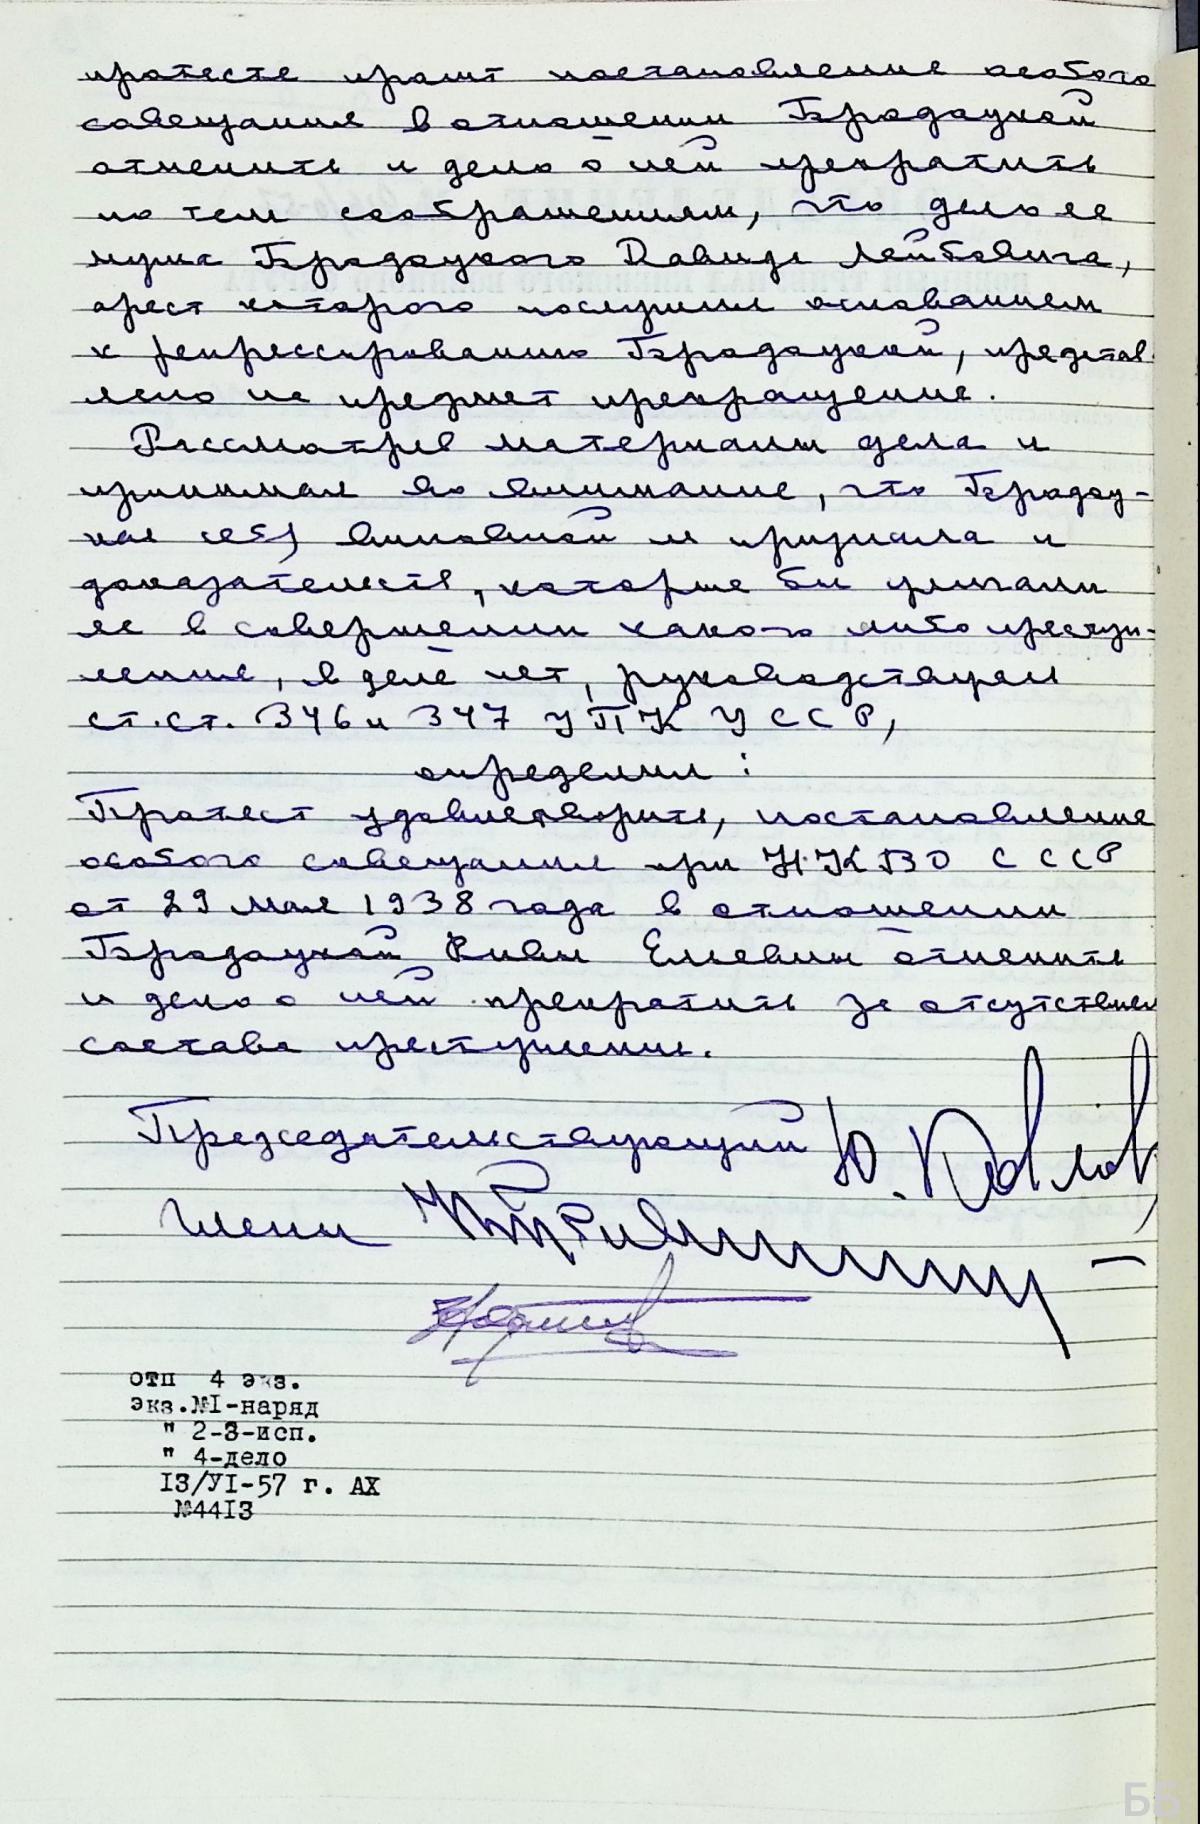 протесте просит постановление особого
совещания в отношении Бродоцкой
отменить и дело о ней прекратить
по тем соображениям, что дело ее
мужа Бродоцкого Давида Лейбовича,
арест которого послужил основанием
к репрессированию Бродоцкой, представ-
лено на предмет прекращения.
Рассмотрев материалы дела и
принимая во внимание, что Бродоц-
кая себя виновной не признала и
доказательств, которые бы уличали
ее в совершении какого либо преступ-
ления, в деле нет, руководствуясь
ст.ст. 346 и 347 УПК УССР,
определил:
Протест удовлетворить, постановление
особого совещания при НКВД СССР
от 29 мая 1938 года в отношении
Бродоцкой Ривы Елевны отменить
и дело о ней прекратить за отсутствием
состава преступления.
Председательствующий Ю. Павлов
Члены
отп 4 экз.
экз.№I-наряд
" 2-3-исп.
" 4-дело
I3/УI-57 г. АХ
№44I3
ББ